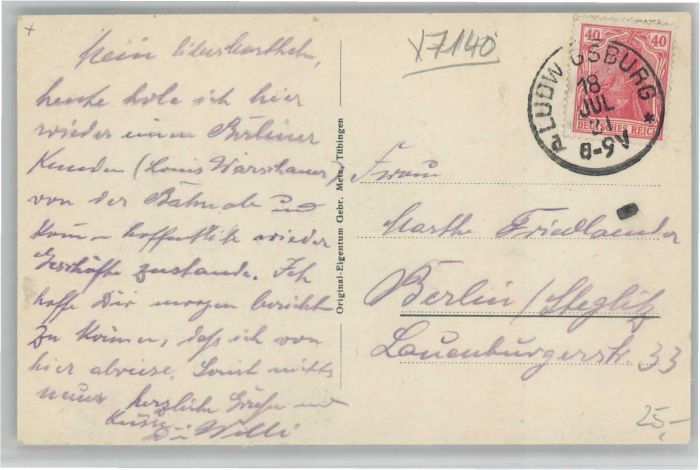 Mein liebes
heute hole ich hier
wieder einen Berliner
Kunden (Louis Warschauer)
von der Bahn ab und
hoffentlich wieder
Geschäfte zustande. Ich
hoffe Dir morgen berichten
zu können, daß ich von
hier abreise. Sonst nichts
neues herzliche Grüße und
Küsse
Willi
Original-Eigentum Gebr. Metz, Tübingen
Y7140
40 40
DEUTSCHES REICH
LUDWIGSBURG *
18
JUL
21
8-9V
Frau
Marthe Friedlaender
Berlin/Steglitz
Lauenburgerstr. 33
25,-